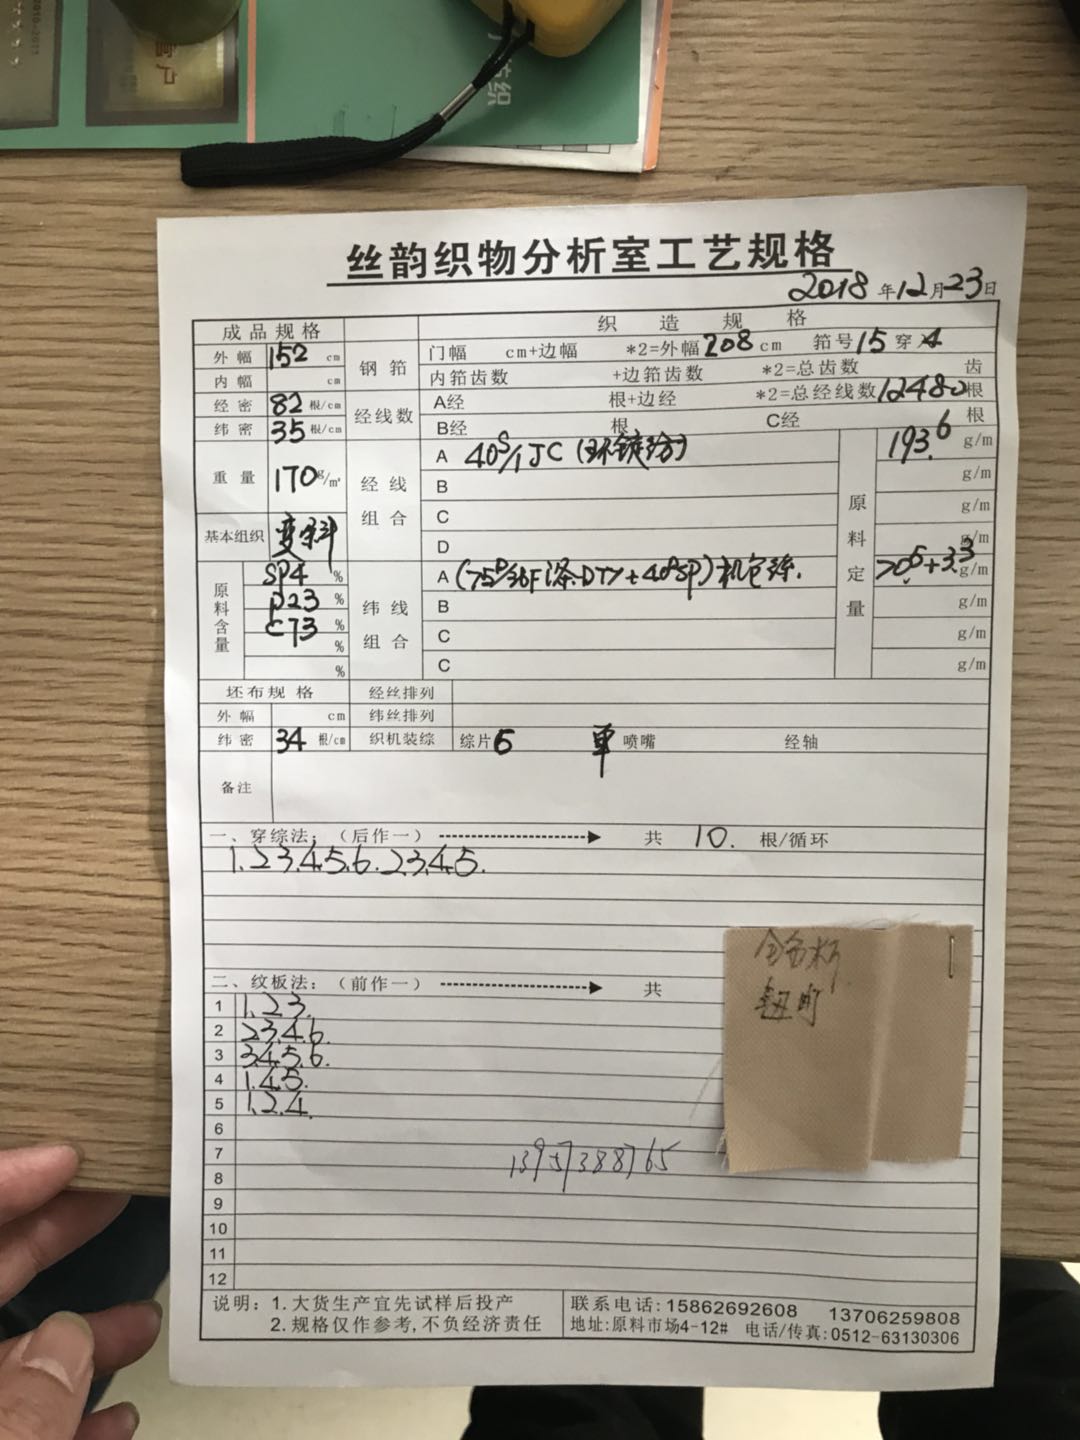 客户
丝韵织物分析室工艺规格
2018年12月23日
成品规格 织造规格
外幅 152 cm 钢筘 门幅 cm+边幅 *2=外幅 208 cm 筘号 15 穿 4
内幅 cm 内筘齿数 +边筘齿数 *2=总齿数 齿
经密 82 根/cm 经线数 A经 根+边经 *2=总经线数 12480 根
纬密 35 根/cm B经 根 C经 根
重量 170 g/m² 经线组合 A 40S/1 JC (环锭纺) 原料定量 193.6 g/m
B g/m
C g/m
基本组织 变斜 D g/m
原料含量 SP4 % 纬线组合 A (75D/36F涤DTY+40DSP)机包丝. 20.5+3.3 g/m
P23 % B g/m
C73 % C g/m
% C g/m
%
坯布规格 经丝排列
外幅 cm 纬丝排列
纬密 34 根/cm 织机装综 综片 6 单 喷嘴 经轴
备注
一、穿综法:(后作一) 共 10. 根/循环
1.2.3.4.5.6.2.3.4.5.
二、纹板法:(前作一) 共
1 1.2.3.
2 2.3.4.6.
3 3.4.5.6.
4 1.4.5.
5 1.2.4.
6
7
8
9
10
11
12
13957388765
说明:1.大货生产宜先试样后投产
2.规格仅作参考,不负经济责任
联系电话:15862692608 13706259808
地址:原料市场4-12# 电话/传真:0512-63130306